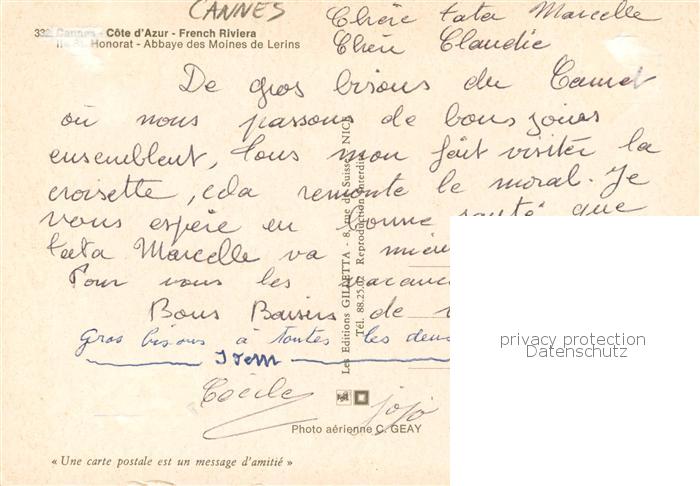 CANNES
Chère tata Marcelle
332 Cannes - Côte d'Azur - French Riviera
Chère Claudie
Ile St. Honorat - Abbaye des Moines de Lerins
De gros bisous du Cannet
où nous passons de bons jours
ensemblent, tous mon fait visiter la
croisette, cela remonte le moral. Je
vous espère en bonne santé que
tata Marcelle va
Pour vous les
Bons Baisers de
Gros bisous à toutes les deux
Idem
Cécile
jojo
Les Editions GILLETTA - 8, rue de Suisse - NICE
Tél. 88.25.02 Reproduction interdite
Photo aérienne C. GEAY
« Une carte postale est un message d'amitié »
privacy protection
Datenschutz